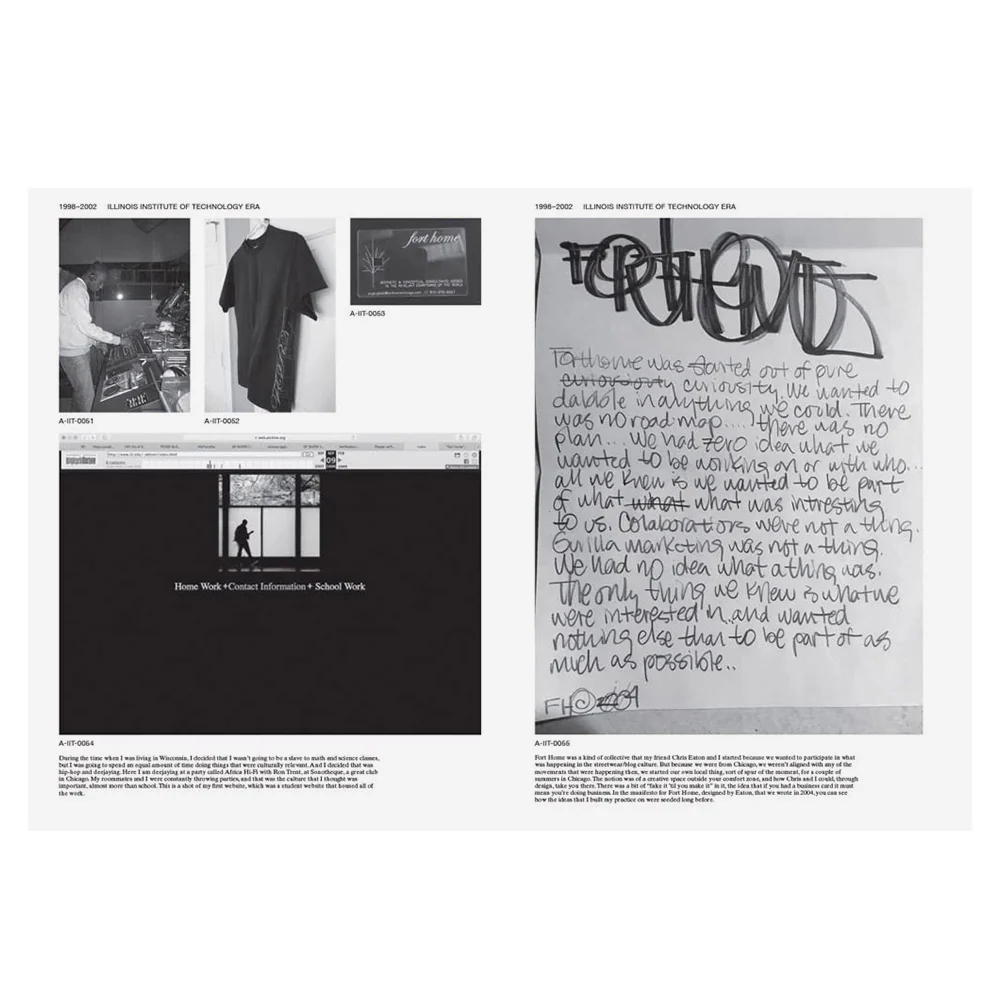 1998–2002 ILLINOIS INSTITUTE OF TECHNOLOGY ERA
fort home
A-IIT-0053
A-IIT-0051
A-IIT-0052
web.archive.org
Home Work + Contact Information + School Work
A-IIT-0054
During the time when I was living in Wisconsin, I decided that I wasn't going to be a slave to math and science classes,
but I was going to spend an equal amount of time doing things that were culturally relevant. And I decided that was
hip-hop and deejaying. Here I am deejaying at a party called Africa Hi-Fi with Ron Trent, at Sonotheque, a great club
in Chicago. My roommates and I were constantly throwing parties, and that was the culture that I thought was
important, almost more than school. This is a shot of my first website, which was a student website that housed all of
the work.
1998–2002 ILLINOIS INSTITUTE OF TECHNOLOGY ERA
FORTHOME
Forthome was started out of pure
curiousity. We wanted to
dabble in anything we could. There
was no road map.... there was no
plan... We had zero idea what we
wanted to be working on or with who...
all we knew is we wanted to be part
of what what what was intresting
to us. Colaborations were not a thing.
Gurilla marketing was not a thing.
We had no idea what a thing was.
The only thing we knew is what we
were interested in.. and wanted
nothing else than to be part of as
much as possible..
FHO
A-IIT-0055
Fort Home was a kind of collective that my friend Chris Eaton and I started because we wanted to participate in what
was happening in the streetwear/blog culture. But because we were from Chicago, we weren't aligned with any of the
movements that were happening then, we started our own local thing, sort of spur of the moment, for a couple of
summers in Chicago. The notion was of a creative space outside your comfort zone, and how Chris and I could, through
design, take you there. There was a bit of "fake it 'til you make it" in it, the idea that if you had a business card it must
mean you're doing business. In the manifesto for Fort Home, designed by Eaton, that we wrote in 2004, you can see
how the ideas that I built my practice on were seeded long before.